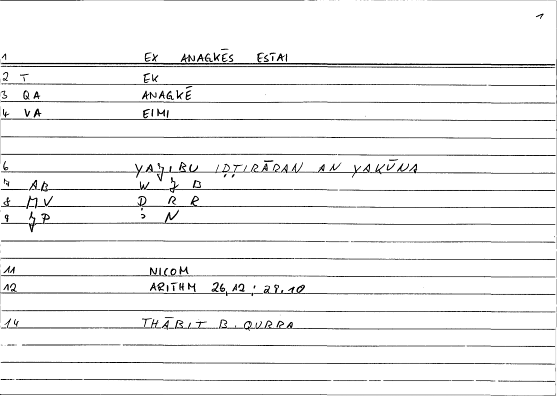 1
1 EX ANAGKĒS ESTAI
2 T EK
3 QA ANAGKĒ
4 VA EIMI
6 YAǦIBU IḌṬIRĀRAN AN YAKŪNA
7 AB W Ǧ B
8 MV Ḍ R R
9 ǦP N
11 NICOM
12 ARITHM 26,12 : 29.10
14 THĀBIT B. QURRA